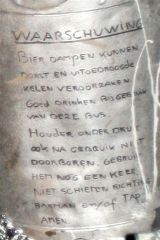 WAARSCHUWING
BIER DAMPEN KUNNEN
DORST EN UITGEDROOGDE
KELEN VEROORZAKEN
GOED DRINKEN BIJ GEBRUIK
VAN DEZE BUS.
HOUDER ONDER DRUK
OOK NA GEBRUIK NIET
DOORBOREN. GEBRUIK
HEM NOG EEN KEER
NIET SCHIETEN RICHTING
BARMAN EN/OF TAP
AMEN